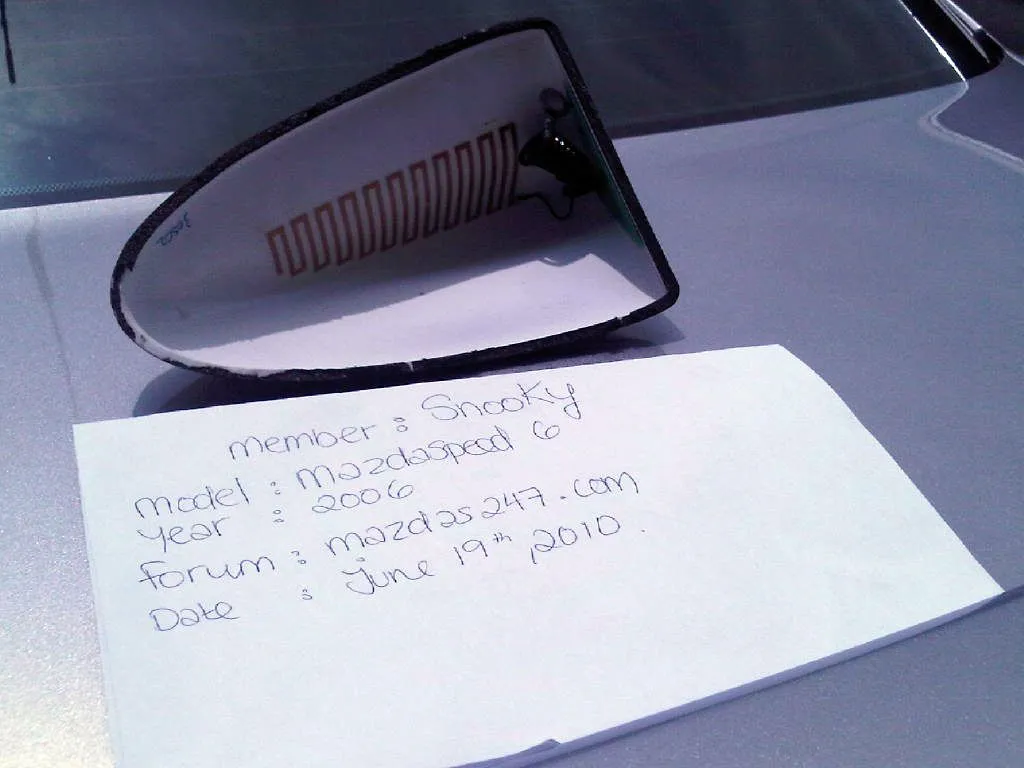 member : Snooky
model : mazdaspeed 6
year : 2006
forum : mazdas247.com
Date : june 19th, 2010.